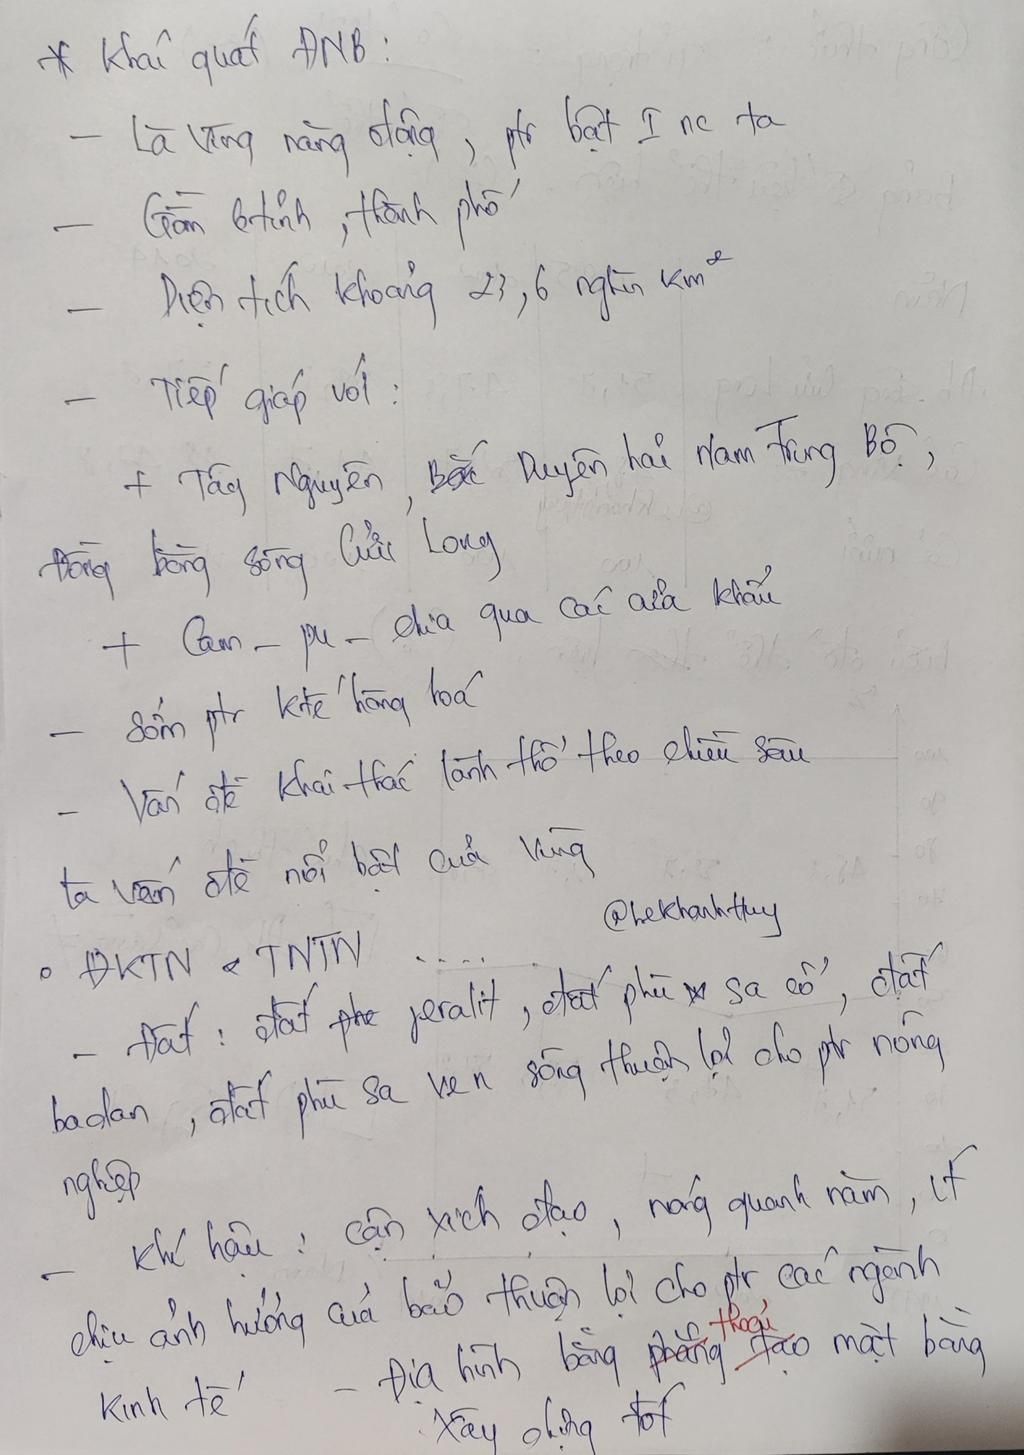 * Khái quát ĐNB :
- Là vùng năng động, ptr bật I nc ta
- Gồm 6 tỉnh, thành phố
- Diện tích khoảng 23,6 nghìn km²
- Tiếp giáp với :
+ Tây Nguyên, Duyên hải Nam Trung Bộ,
Đồng bằng sông Cửu Long
+ Cam - pu - chia qua các cửa khẩu
- Sớm ptr ktế hàng hoá
- Vấn đề khai thác lãnh thổ theo chiều sâu
là vấn đề nổi bật của vùng
@lekhanhthuy
• ĐKTN & TNTN .....
- Đất : đất feralit, đất phù sa cổ, đất
badan, đất phù sa ven sông thuận lợi cho ptr nông
nghiệp
- Khí hậu : cận xích đạo, nóng quanh năm, ít
chịu ảnh hưởng của bão thuận lợi cho ptr các ngành
kinh tế - Địa hình bằng phẳng thoải tạo mặt bằng
xây dựng tốt